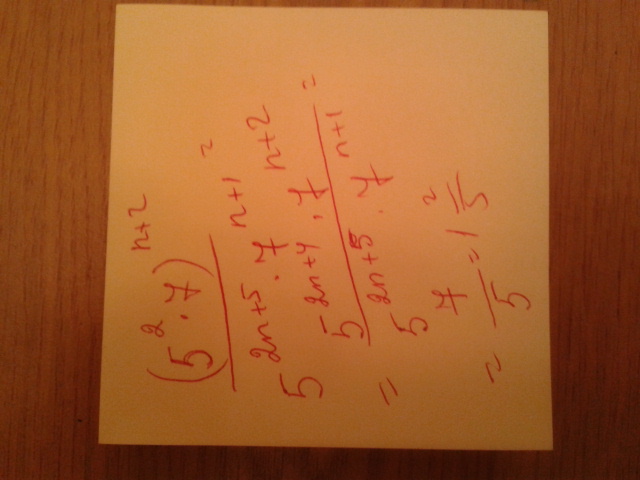 (5²·7)ⁿ⁺² =
5²ⁿ⁺⁵·7ⁿ⁺¹
= 5²ⁿ⁺⁴·7ⁿ⁺² =
5²ⁿ⁺⁵·7ⁿ⁺¹
= 7/5 = 1 2/5